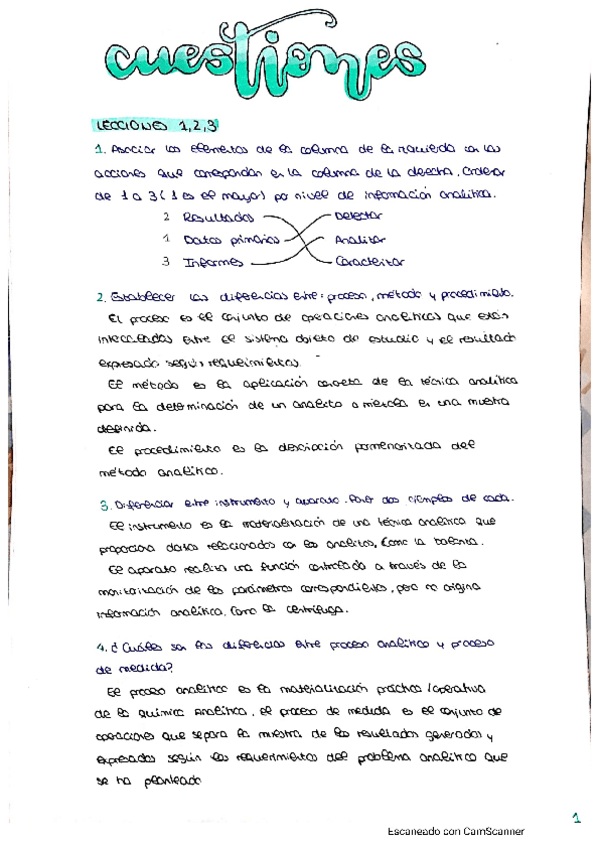 cuestiones
LECCIONES 1,2,3
1. Asociar los elementos de la columna de la izquierda con las
acciones que correspondan en la columna de la derecha. Ordenar
de 1 a 3 (1 es el mayor) por nivel de información analítica.
2 Resultados Detectar
1 Datos primarios Analizar
3 Informes Caracterizar
2. Establecer las diferencias entre: proceso, método y procedimiento.
El proceso es el conjunto de operaciones analíticas que están
intercaladas entre el sistema objeto de estudio y el resultado
expresado según requerimientos.
El método es la aplicación concreta de la técnica analítica
para la determinación de un analito o mezcla en una muestra
definida.
El procedimiento es la descripción pormenorizada del
método analítico.
3. Diferenciar entre instrumento y aparato. Poner dos ejemplos de cada.
El instrumento es la materialización de una técnica analítica que
proporciona datos relacionados con los analitos. Como la balanza.
El aparato realiza una función controlada a través de la
monitorización de los parámetros correspondientes, pero no origina
información analítica. Como la centrífuga.
4. ¿Cuáles son las diferencias entre proceso analítico y proceso
de medida?
El proceso analítico es la materialización práctica/operativa
de la química analítica, el proceso de medida es el conjunto de
operaciones que separa la muestra de los resultados generados y
expresados según los requerimientos del problema analítico que
se ha planteado
1
Escaneado con CamScanner